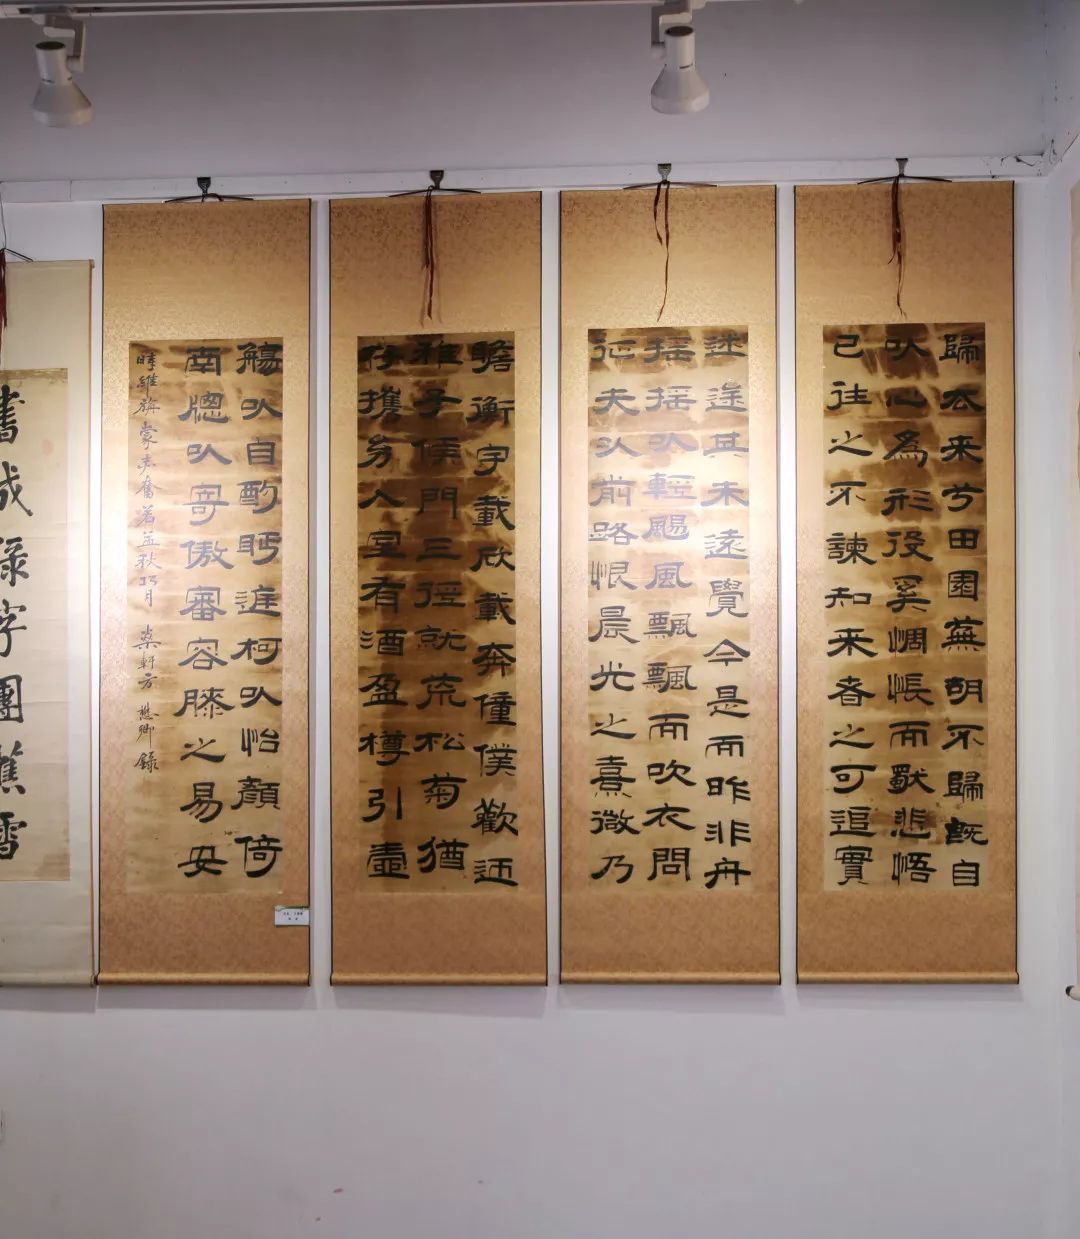 歸去来兮田園蕪胡不歸既自
以心為形役奚惆悵而獨悲悟
已往之不諫知来者之可追實
迷途其未遠覺今是而昨非舟
摇摇以輕颺風飄飄而吹衣問
征夫以前路恨晨光之熹微乃
瞻衡宇載欣載奔僮僕歡迎
稚子候門三徑就荒松菊猶
存攜幼入室有酒盈樽引壺
觴以自酌眄庭柯以怡顏倚
南牕以寄傲審容膝之易安
時維旃蒙赤奮若孟秋巧月 軒方懋卿錄
書成綠字團蕉雪